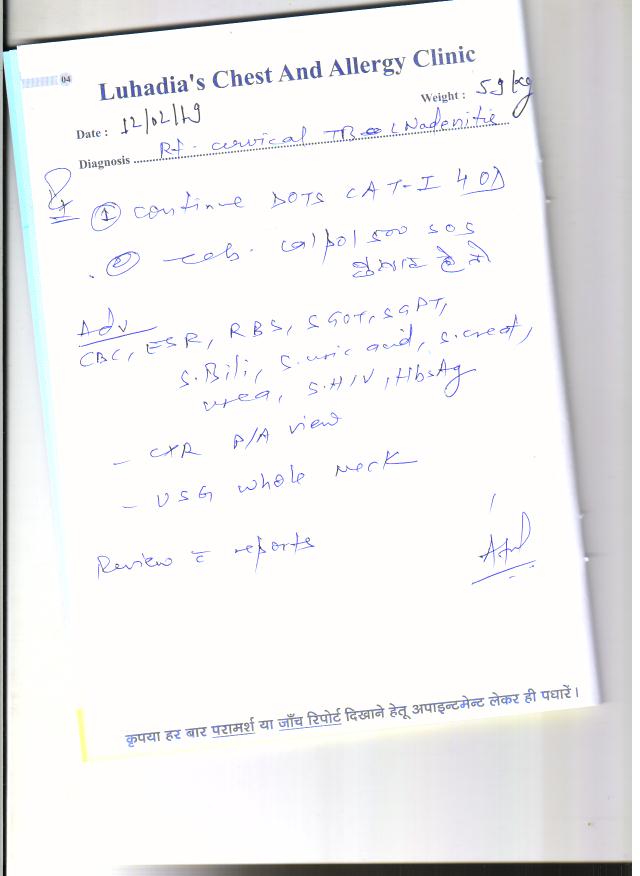 04
Luhadia's Chest And Allergy Clinic
Weight : 59 kg
Date : 12/02/19
Diagnosis Rt. cervical TB LNadenitis
① continue DOTS CAT-I 4 OD
② Tab. calpol 500 SOS
बुखार हो तो
Adv
CBC, ESR, RBS, SGOT, SGPT,
S.Bili, S.uric acid, S.creat,
urea, S.HIV, HbsAg
- CXR P/A view
- USG whole neck
Review c̄ reports
कृपया हर बार परामर्श या जाँच रिपोर्ट दिखाने हेतू अपाइन्टमेन्ट लेकर ही पधारें।